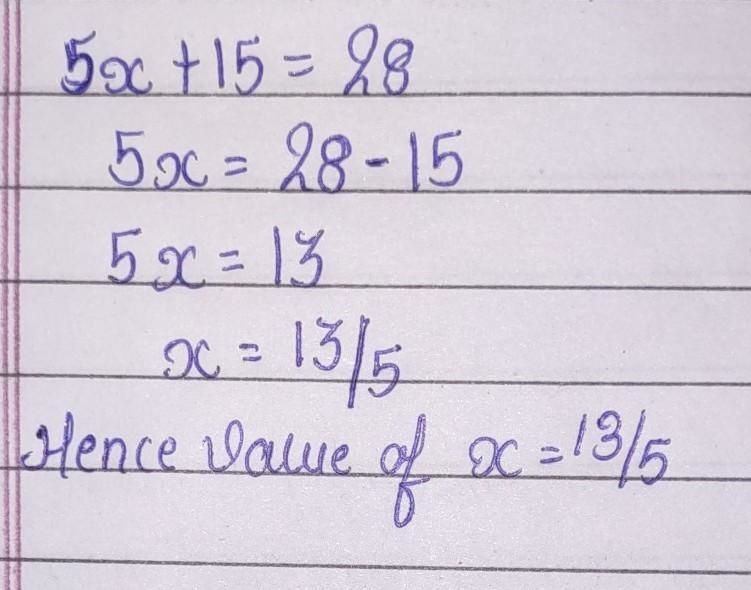 5x + 15 = 28
5x = 28 - 15
5x = 13
x = 13/5
Hence Value of x = 13/5